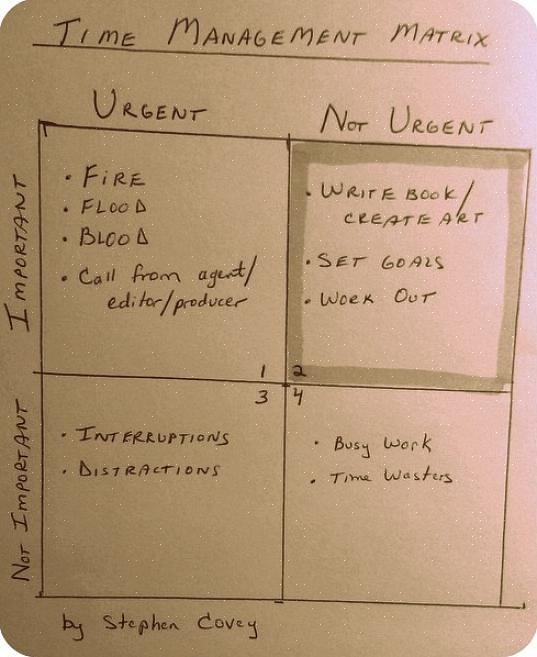 TIME MANAGEMENT MATRIX
URGENT
NOT URGENT
IMPORTANT
• FIRE
• FLOOD
• BLOOD
• Call from agent/
editor/producer
1
• WRITE BOOK/
CREATE ART
• SET GOALS
• WORK OUT
2
NOT IMPORTANT
3
• INTERRUPTIONS
• DISTRACTIONS
4
• Busy Work
• Time Wasters
by Stephen Covey